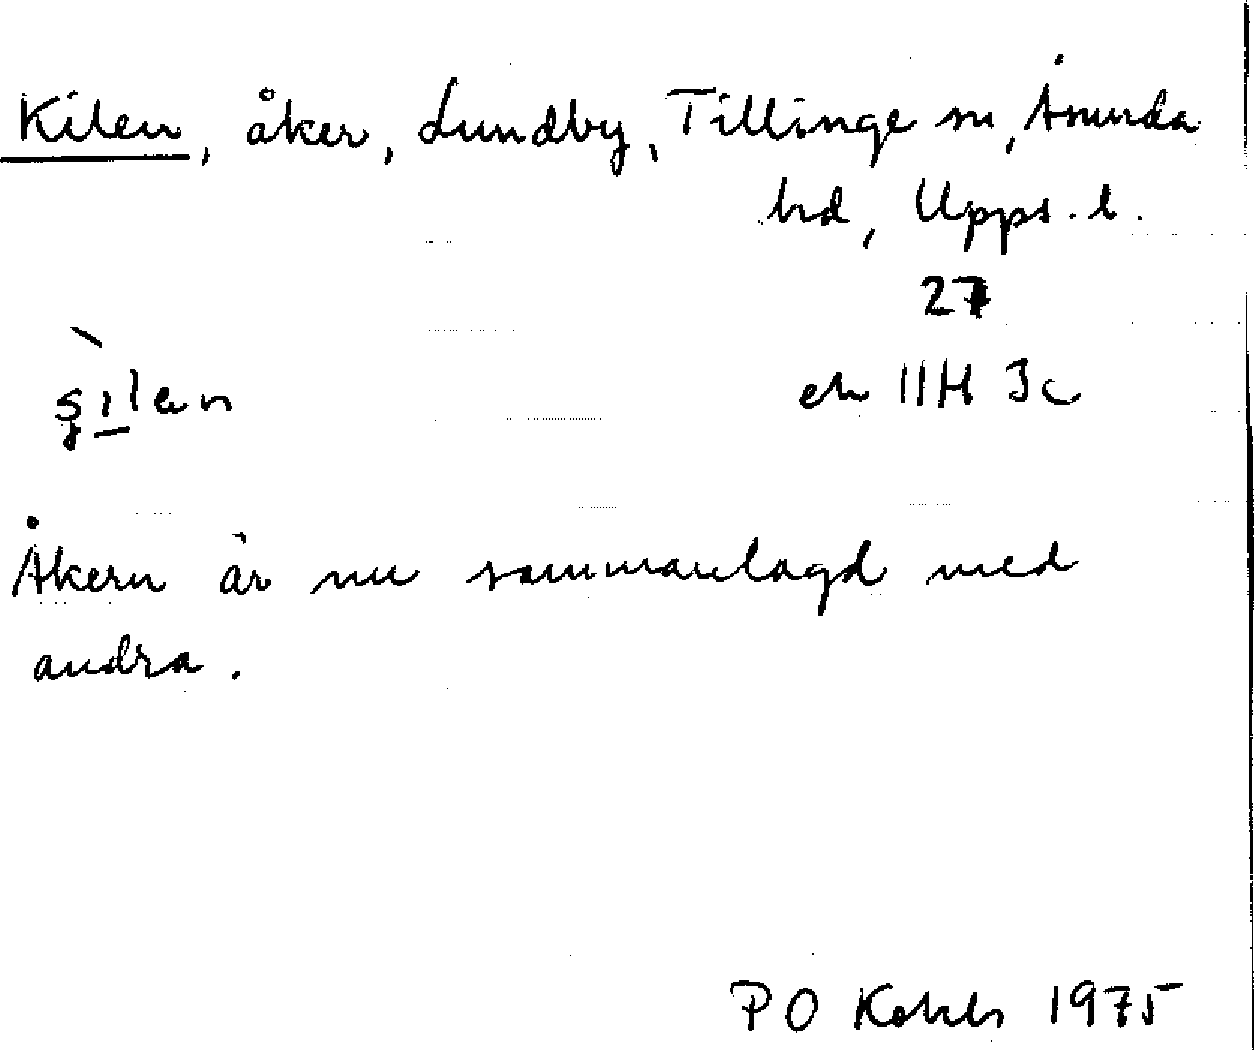 Kilen, åker, Lundby, Tillinge sn, Åsunda
hd, Upps. l.
27
ek 11H 3c
Åkern är nu sammanlagd med
andra.
PO 1975